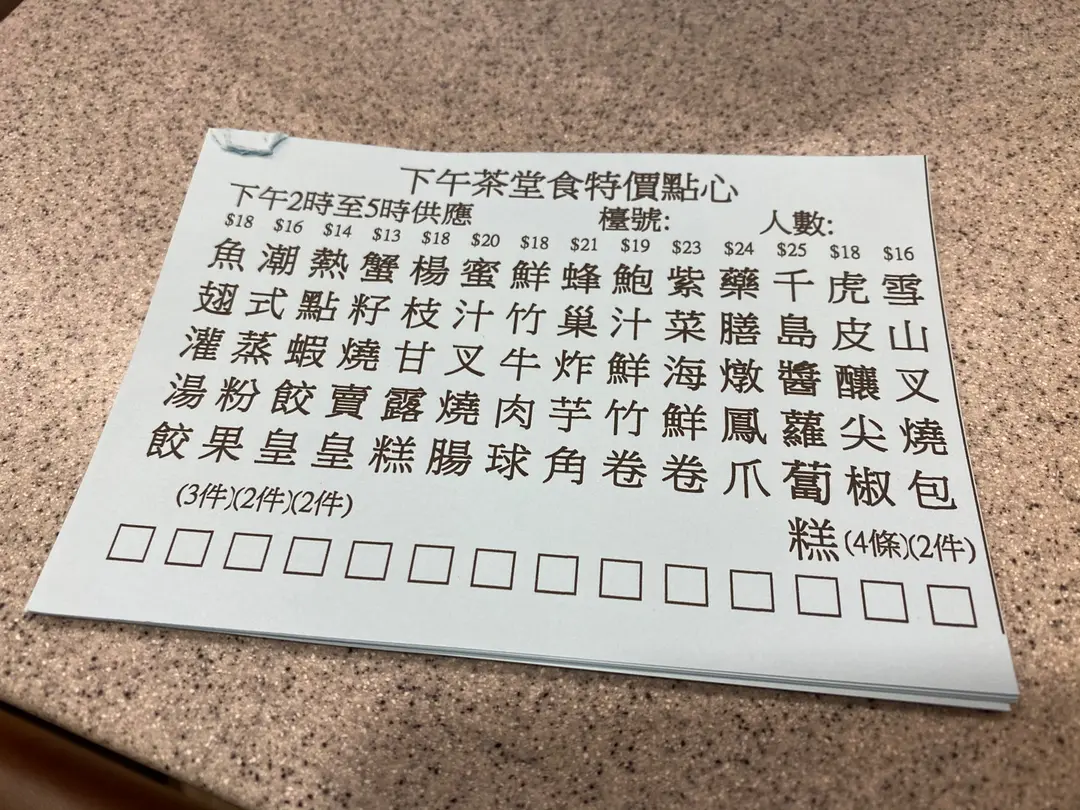 下午茶堂食特價點心
下午2時至5時供應 檯號: 人數:
$16 雪山叉燒包 (2件)
$18 虎皮釀尖椒 (4條)
$25 千島醬蘿蔔糕
$24 藥膳燉鳳爪
$23 紫菜海鮮卷
$19 鮑汁鮮竹卷
$21 蜂巢炸芋角
$18 鮮竹牛肉球
$20 蜜汁叉燒腸
$18 楊枝甘露糕
$13 蟹籽燒賣皇 (2件)
$14 熱點蝦餃皇 (2件)
$16 潮式蒸粉果 (3件)
$18 魚翅灌湯餃